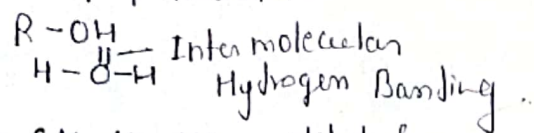 R-OH
H-O-H — Intermolecular
Hydrogen Banding.